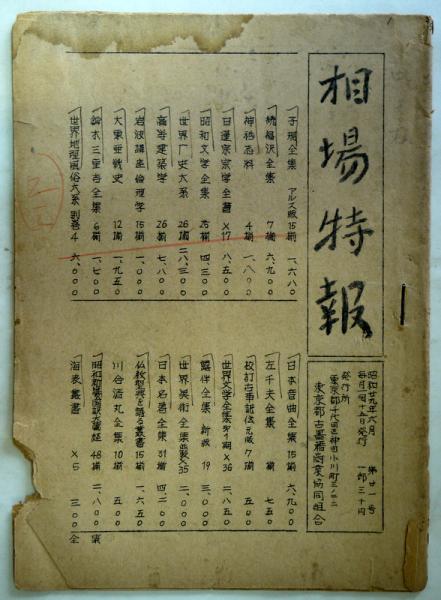 相場特報
昭和廿九年六月 第廿一号
毎月一回十五日発行 一部三十円
発行所
東京都千代田区神田小川町三ノ二二
東京都古書籍商業協同組合
子規全集 アルス版 15揃 一、六八〇
続福沢全集 7揃 六、九〇〇
神祇志料 4揃 一、八〇〇
日蓮宗宗学全書 ×17 八、五〇〇
昭和文学全集 25揃 四、三〇〇
世界歴史大系 26揃 二、八三〇
高等建築学 26揃 七、八〇〇
岩波講座倫理学 15揃 一、〇〇〇
大東亜戦史 12揃 一、九五〇
鈴木三重吉全集 6揃 一、七〇〇
世界地理風俗大系 別巻4 六、〇〇〇
日本音曲全集 15揃 六、九〇〇
左千夫全集 揃 七五〇
校訂古事記伝 7揃 五〇〇
世界文学全集 第1期 ×36 二、八五〇
露伴全集 新版 19 三、〇〇〇
世界美術全集 35 二、五〇〇
日本名著全集 31揃 四、二〇〇
仏教聖典を語る叢書 15揃 一、六五〇
川合清丸全集 10揃 五〇〇
48揃 二、八〇〇
海表叢書 ×5 三〇〇